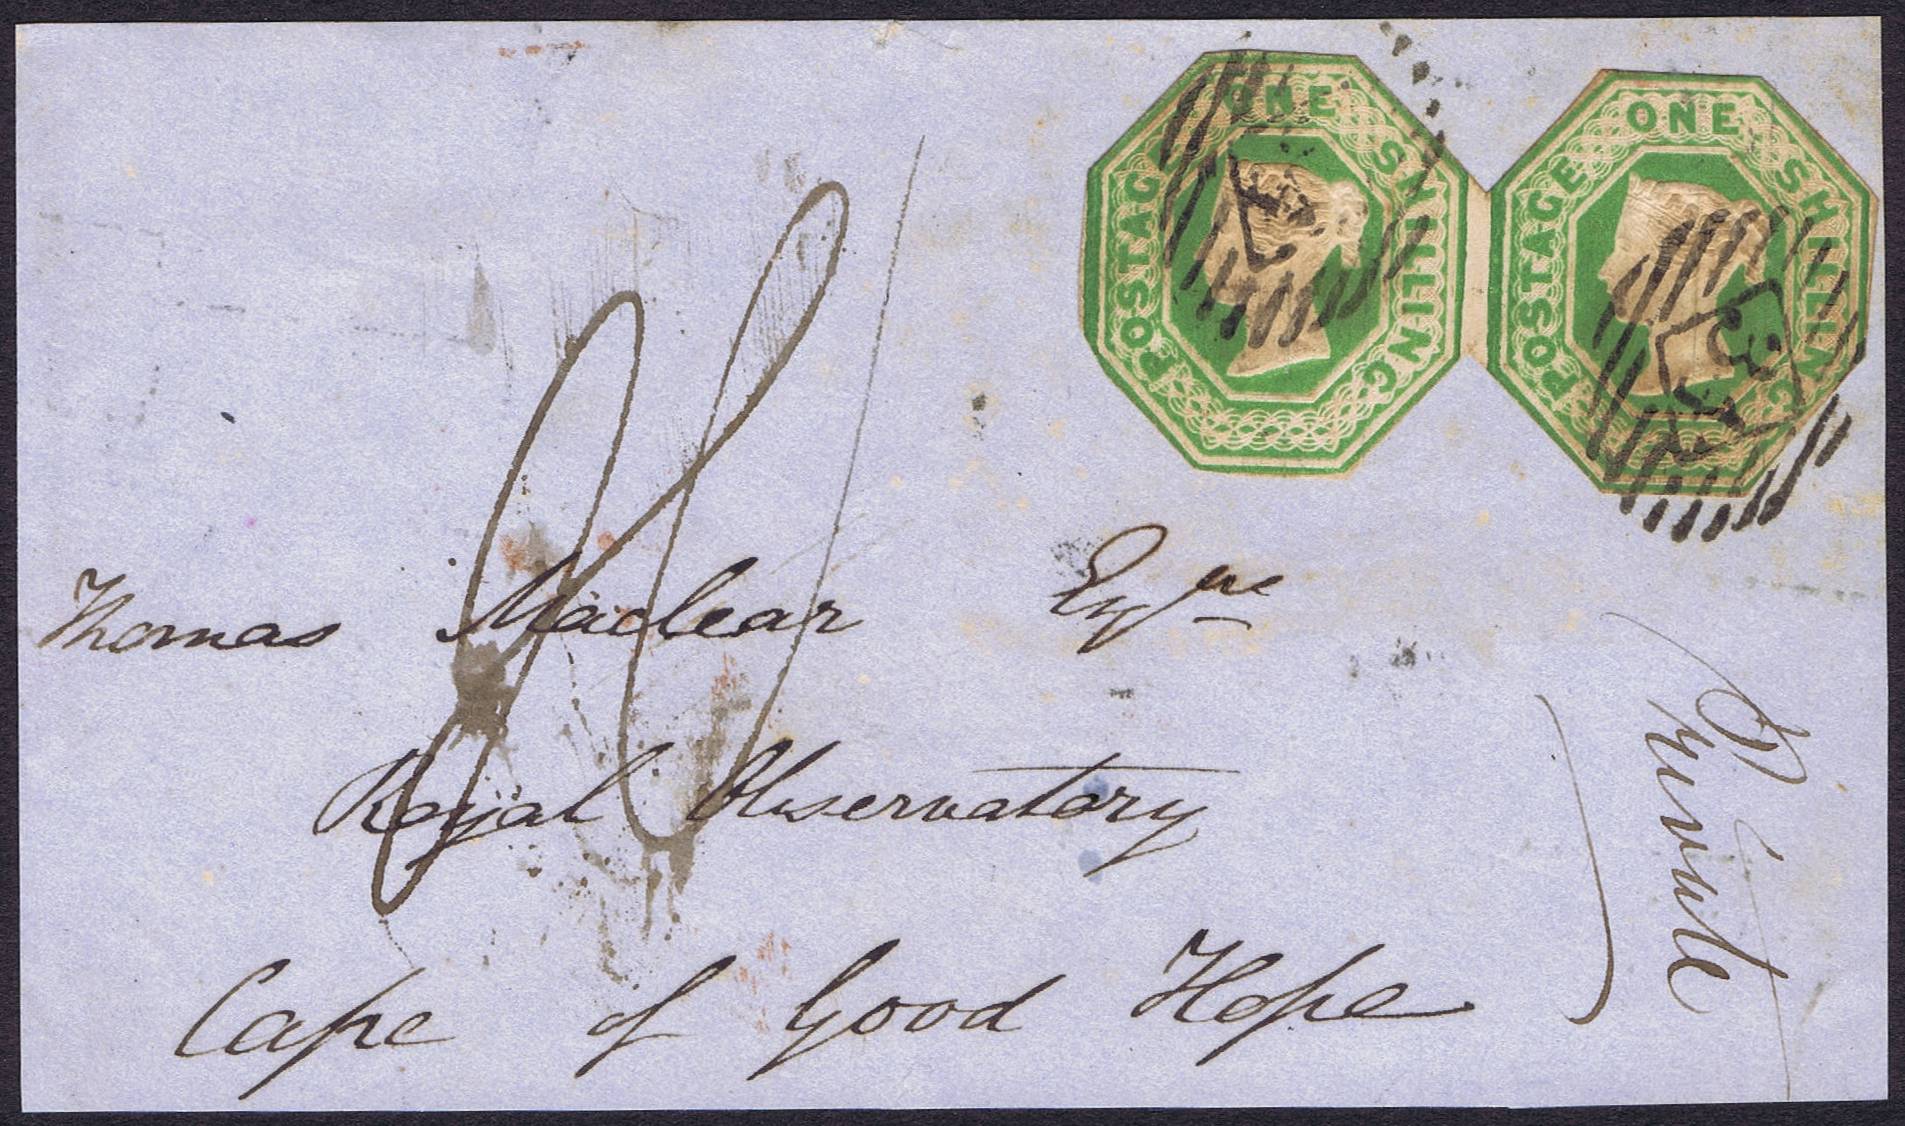 ONE SHILLING
POSTAGE
ONE SHILLING
POSTAGE
Thomas Maclear Esqre
Royal Observatory
Cape of Good Hope
Private